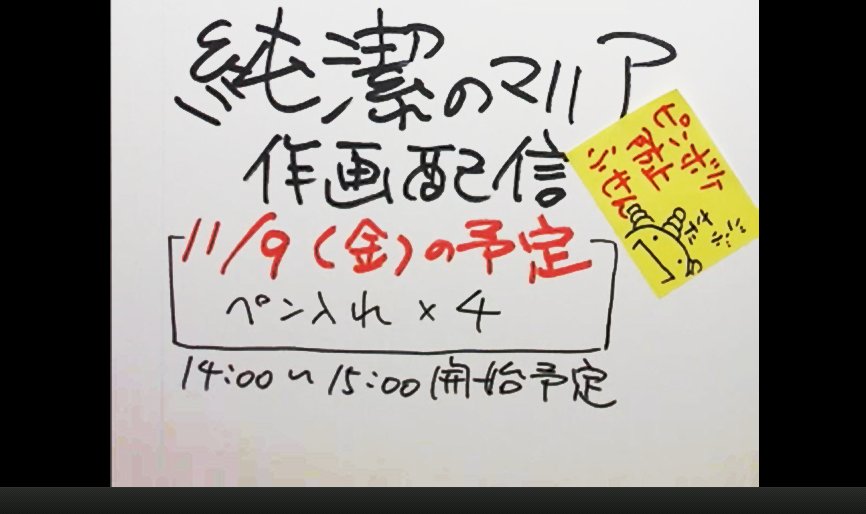 純潔のマリア
作画配信
11/9(金)の予定
ペン入れ×4
14:00〜15:00開始予定
ピンボケ
防止
ふせん